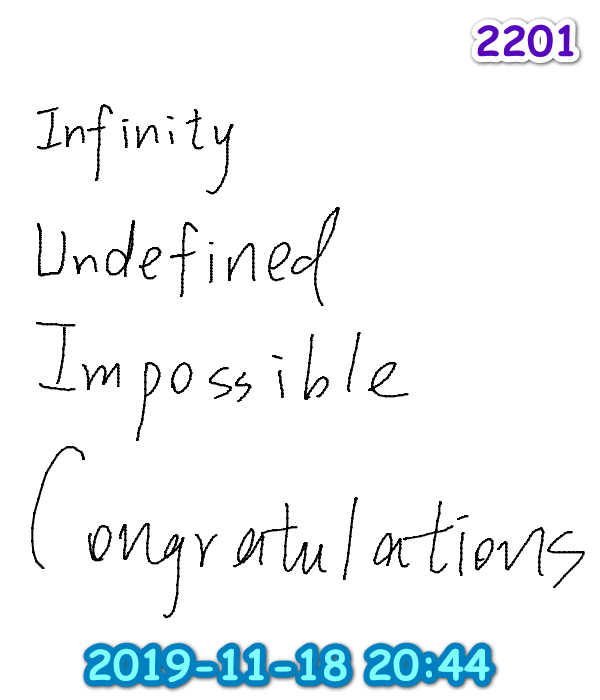 2201
Infinity
Undefined
Impossible
Congratulations
2019-11-18 20:44